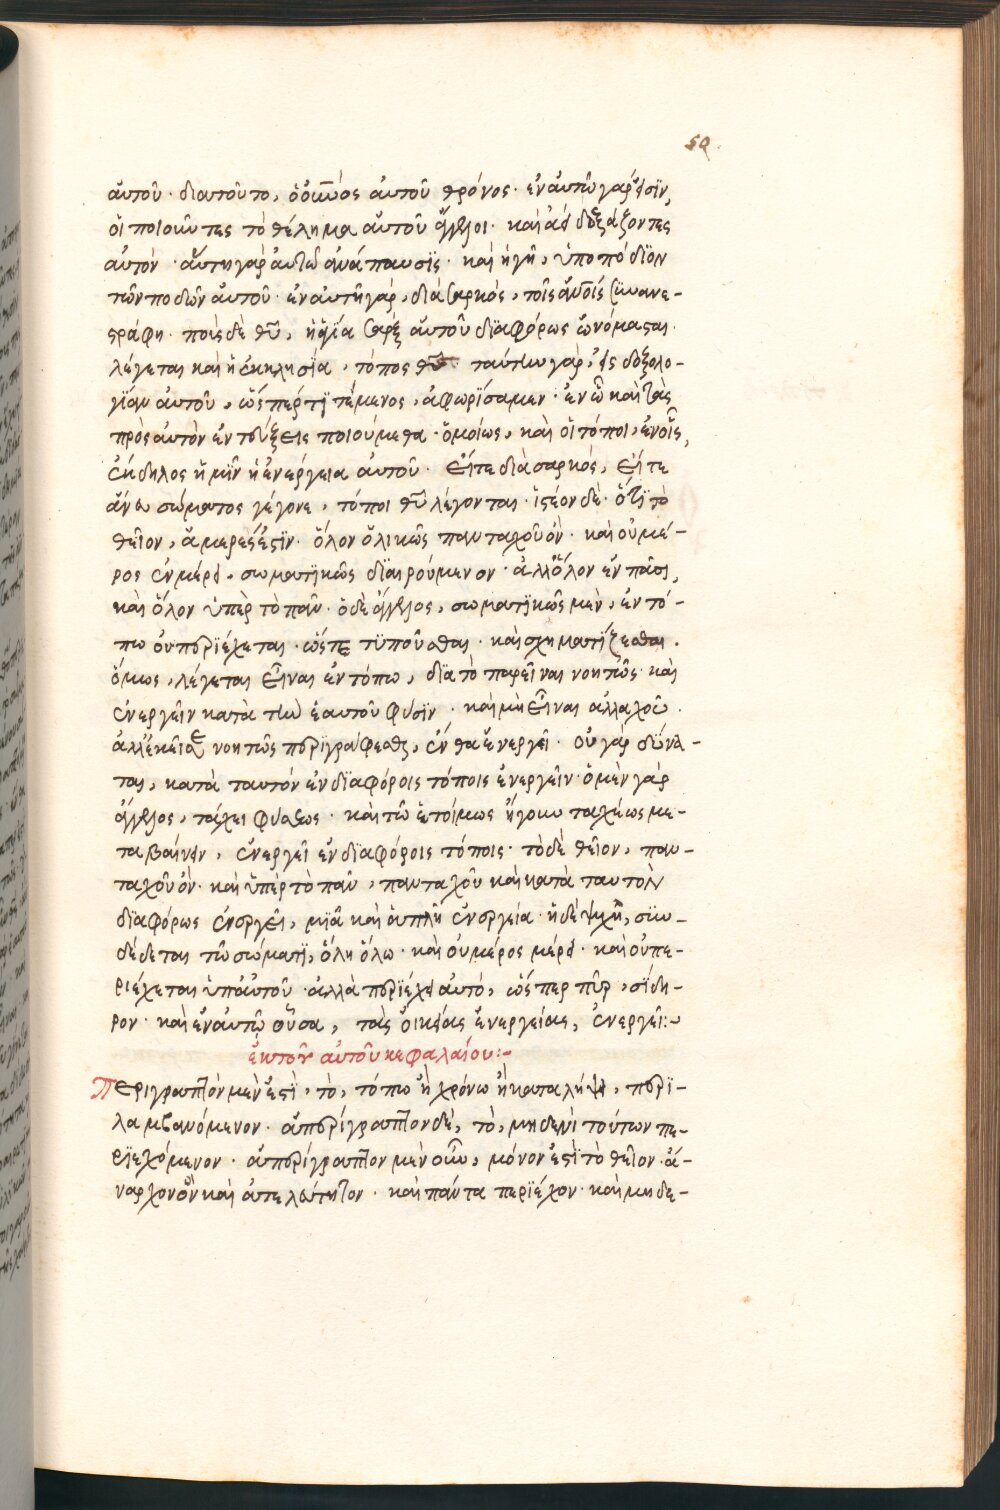 59.
αὐτοῦ· διατοῦτο, ὁ οὐ̅νο̅ς αὐτοῦ θρόνος· ἐν αὐτῶ γάρ εἰσϊν,
οἱ ποιοῦντες τὸ θέλημα αὐτοῦ ἄγγελοι· καὶ ἀεὶ δοξάζοντες
αὐτόν· αὕτη γὰρ αὐτῶ ἀνάπαυσϊς· καὶ ἡ γῆ, ὑποπόδϊον
τῶν ποδῶν αὐτοῦ· ἐν αὐτῆ γάρ, διὰ σαρκός, τοῖς ἀν̅οις συνανε-
στράφη· ποὺς δὲ θ̅υ, ἡ ἁγία σὰρξ αὐτοῦ δϊαφόρως ὠνόμασται·
λέγεται καὶ ἡ ἐκκλησΐα, τόπος θ̅υ· ταύτην γὰρ, εἰς δοξολο-
γΐαν αὐτοῦ, ὥσπέρ τϊ τέμενος, ἀφωρΐσαμεν· ἐν ὧ καὶ τὰς
πρὸς αὐτὸν ἐντεύξεις ποιούμεθα· ὁμοίως, καὶ οἱ τόποι, ἐν οἷς,
ἔκδηλος ἡμῖν ἡ ἐνέργεια αὐτοῦ· εἴτε διὰ σαρκός, εἴτε
ἄνευ σώματος γέγονε, τόποι θ̅υ λέγονται· ἰστέον δὲ· ὅτϊ τὸ
θεῖον, ἀμερές ἐστϊν· ὅλον ὁλικῶς πανταχοῦ ὄν· καὶ οὐ μέ-
ρος ἐν μέρει, σωματϊκῶς δϊαιρούμενον· ἀλλ' ὅλον ἐν πᾶσι,
καὶ ὅλον ὑπὲρ τὸ πᾶν· ὁ δὲ ἄγγελος, σωματϊκῶς μὲν, ἐν τό-
πω οὐ περϊέχεται· ὥστε τϋποῦσθαι· καὶ σχηματΐζεσθαι·
ὅμως, λέγεται εἶναι ἐν τόπω, δϊὰ τὸ παρεῖναι νοητῶς· καὶ
ἐνεργεῖν κατὰ τὴν ἑαυτοῦ φύσϊν· καὶ μὴ εἶναι ἀλλαχοῦ·
ἀλλ' ἐκεῖσε νοητῶς περϊγράφεσθαι, ἔνθα ἐνεργεῖ· οὐ γάρ δύνα-
ται, κατὰ ταυτόν ἐν δϊαφόροις τόποις ἐνεργεῖν· ὁ μὲν γὰρ
ἄγγελος, τάχει φύσεως· καὶ τῶ ἑτοίμως ἤγουν ταχέως με-
ταβαίνειν, ἐνεργεῖ ἐν δϊαφόροις τόποις· τὸ δὲ θεῖον, παν-
ταχοῦ ὂν· καὶ ὑπὲρ τὸ πᾶν, πανταχοῦ καὶ κατὰ ταυτὸν
δϊαφόρως ἐνεργεῖ, μϊᾶ καὶ ἁπλῆ ἐνεργεία· ἡ δὲ ψυχῆ, συν-
δέδεται τῶ σώματϊ, ὅλη ὅλω· καὶ οὐ μέρος μέρει· καὶ οὐ πε-
ριέχεται ὑπ' αὐτοῦ· ἀλλὰ περϊέχει αὐτό, ὥσπερ πῦρ, σίδη-
ρον· καὶ ἐν αὐτῶ οὖσα, τὰς οἰκείας ἐνεργείας, ἐνεργεῖ:~
ἐκ τοῦ αὐτοῦ κεφαλαίου:~
Περιγραπτὸν μὲν ἐστϊ, τὸ, τόπω ἢ χρόνω ἢ καταλήψει, περϊ-
λαμβανόμενον· ἀπερίγραπτον δέ, τὸ, μηδενὶ τούτων πε-
ρϊεχόμενον· ἀπερίγραπτον μὲν οὖν, μόνον ἐστὶ τὸ θεῖον· ἄ-
ναρχον ὂν καὶ ἀτελεύτητον· καὶ πάντα περϊέχον· καὶ μηδε-